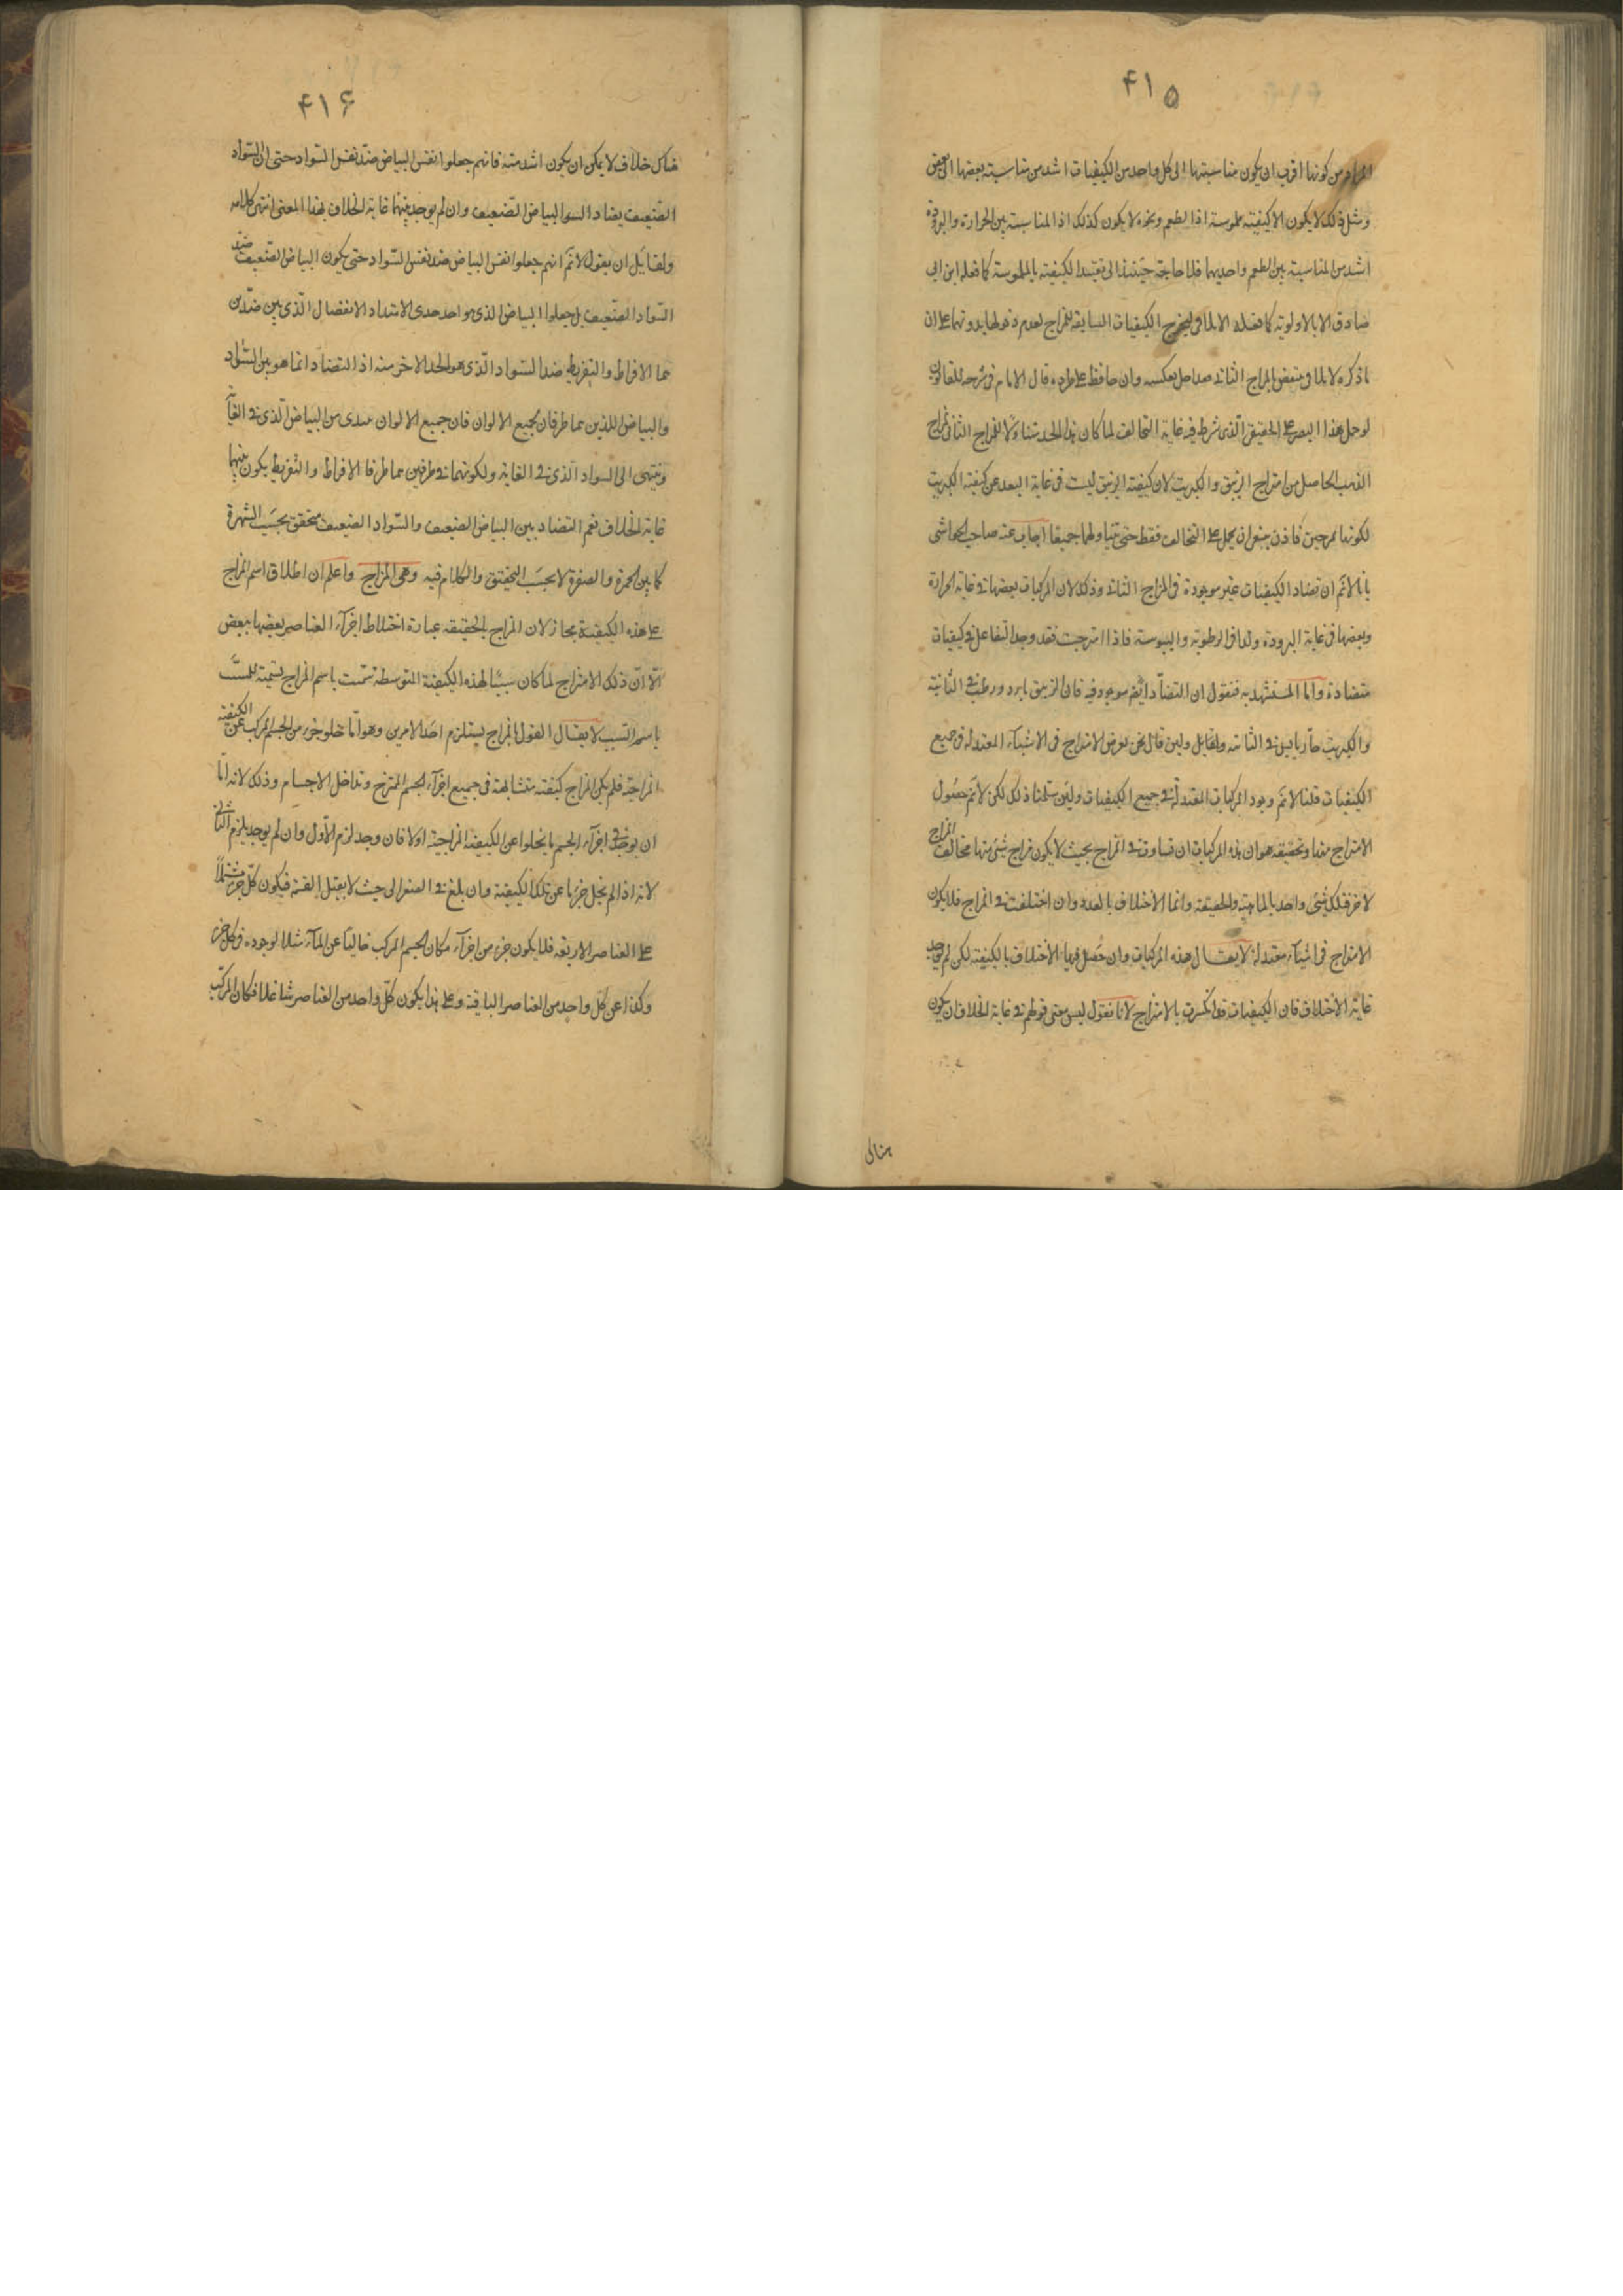 ٤١٥
المراد من كونها اقرب ان يكون مناسبتها الى كل واحد من الكيفيات اشد من مناسبة بعضها الى بعض
ومثل ذلك لا يكون الا كيفية ملموسة اذ الطعم ونحوه لا يكون كذلك اذ المناسبة بين الحرارة والبرودة
اشد من المناسبة بين الطعم واحديهما فلا حاجة حينئذ الى تقييد الكيفية بالملموسة كما فعله ابن ابي
صادق الا بالاولوية كما فعله الايلاقي ليخرج الكيفيات السابقة للمزاج لعدم دخولها بدونهما على ان
ما ذكره الايلاقي منتقض بالمزاج الثاني عكسه وان حافظ على طرده قال الامام في شرحه للقانون
لو حمل هذا التضاد على الحقيقي الذي شرط فيه غاية التخالف لما كان هذا الحد متناولا للمزاج الثاني كمزاج
الذهب الحاصل من امتزاج الزيبق والكبريت لان كيفية الزيبق ليست في غاية البعد عن كيفية الكبريت
لكونهما ممزجين فاذن ينبغي ان يحمل على التخالف فقط حتى يتناولهما جميعا اجاب عنه صاحب الحواشي
بانا لا نم ان تضاد الكيفيات غير موجودة في المزاج الثاني وذلك لان المركبات بعضها في غاية الحرارة
وبعضها في غاية البرودة وكذا في الرطوبة واليبوسة فاذا امتزجت فقد وجد التفاعل في كيفيات
متضادة واما المستشهد به فنقول ان التضاد ايضا موجود فيه فان الزيبق بارد ورطب في الثانية
والكبريت حار يابس في الثانية ولقايل ولين قال نحن نفرض الامتزاج في الاشياء المعتدلة في جميع
الكيفيات قلنا لا نم وجود المركبات المعتدلة في جميع الكيفيات ولئن سلمنا ذلك لكن لا نم حصول
الامتزاج منها وتحقيقه هو ان هذه المركبات ان تساوت في المزاج بحيث لا يكون مزاج شئ منها مخالف المزاج
لاخر فتلك شئ واحد بالماهية والحقيقة وانما الاختلاف بالعدد وان اختلفت في المزاج فلا يكون
الامتزاج في اشياء معتدلة لا يقال هذه المركبات وان حصل فيها الاختلاف بالكيفية لكن لم يوجد
غاية الاختلاف فان الكيفيات قد انكسرت بالامتزاج لانا نقول ليس معنى قولهم في غاية الخلاف ان يكون
٤١۶
هناك خلاف لا يمكن ان يكون اشد منه فانهم جعلوا نفس البياض ضد نفس السواد حتى ان السواد
الضعيف يضاد البياض الضعيف وان لم يوجد بينهما غاية الخلاف بهذا المعنى انتهى كلامه
ولقايل ان يقول لا نم انهم جعلوا نفس البياض ضد نفس السواد حتى يكون البياض الضعيف ضد
السواد الضعيف بل جعلوا البياض الذي هو احد حدي الامتداد الانفصال الذي بين ضدين
هما الافراط والتفريط ضد السواد الذي هو الحد الاخر منه اذ التضاد انما هو بين السواد
والبياض اللذين هما طرفان لجميع الالوان فان جميع الالوان تبتدي من البياض الذي في الغاية
وينتهي الى السواد الذي في الغاية ولكونهما في طرفين هما طرفا الافراط والتفريط يكون بينهما
غاية الخلاف نعم التضاد بين البياض الضعيف والسواد الضعيف متحقق بحسب الشهرة
كما بين الحمرة والصفرة لا بحسب التحقيق والكلام فيه وهي المزاج واعلم ان اطلاق اسم المزاج
على هذه الكيفية مجاز لان المزاج بالحقيقة عبارة اختلاط اجزاء العناصر بعضها ببعض
الا ان ذلك الامتزاج لما كان سببا لهذه الكيفية المتوسطة سميت باسم المزاج تسمية للمسبب
باسم السبب لا يقال القول بالمزاج يستلزم احد الامرين وهو اما خلو جزء من الجسم المركب عن الكيفية
المزاجية فلم يكن المزاج كيفية متشابهة في جميع اجزاء الجسم الممتزج وتداخل الاجسام وذلك لانه اما
ان يوجد في اجزاء الجسم ما يخلوا عن الكيفية المزاجية او لا فان وجد لزم الاول وان لم يوجد يلزم الثاني
لانه اذا لم يخل جزء ما عن تلك الكيفية وان بلغ في الصغر الى حيث لا يقبل القسمة فيكون كل جزء مشتملا
على العناصر الاربعة فلا يكون جزء من اجزاء مكان الجسم المركب خاليا عن الماء مثلا لوجوده في كل جزء
وكذا عن كل واحد من العناصر الباقية وعلى هذا يكون كل واحد من العناصر شاغلا مكان المركب